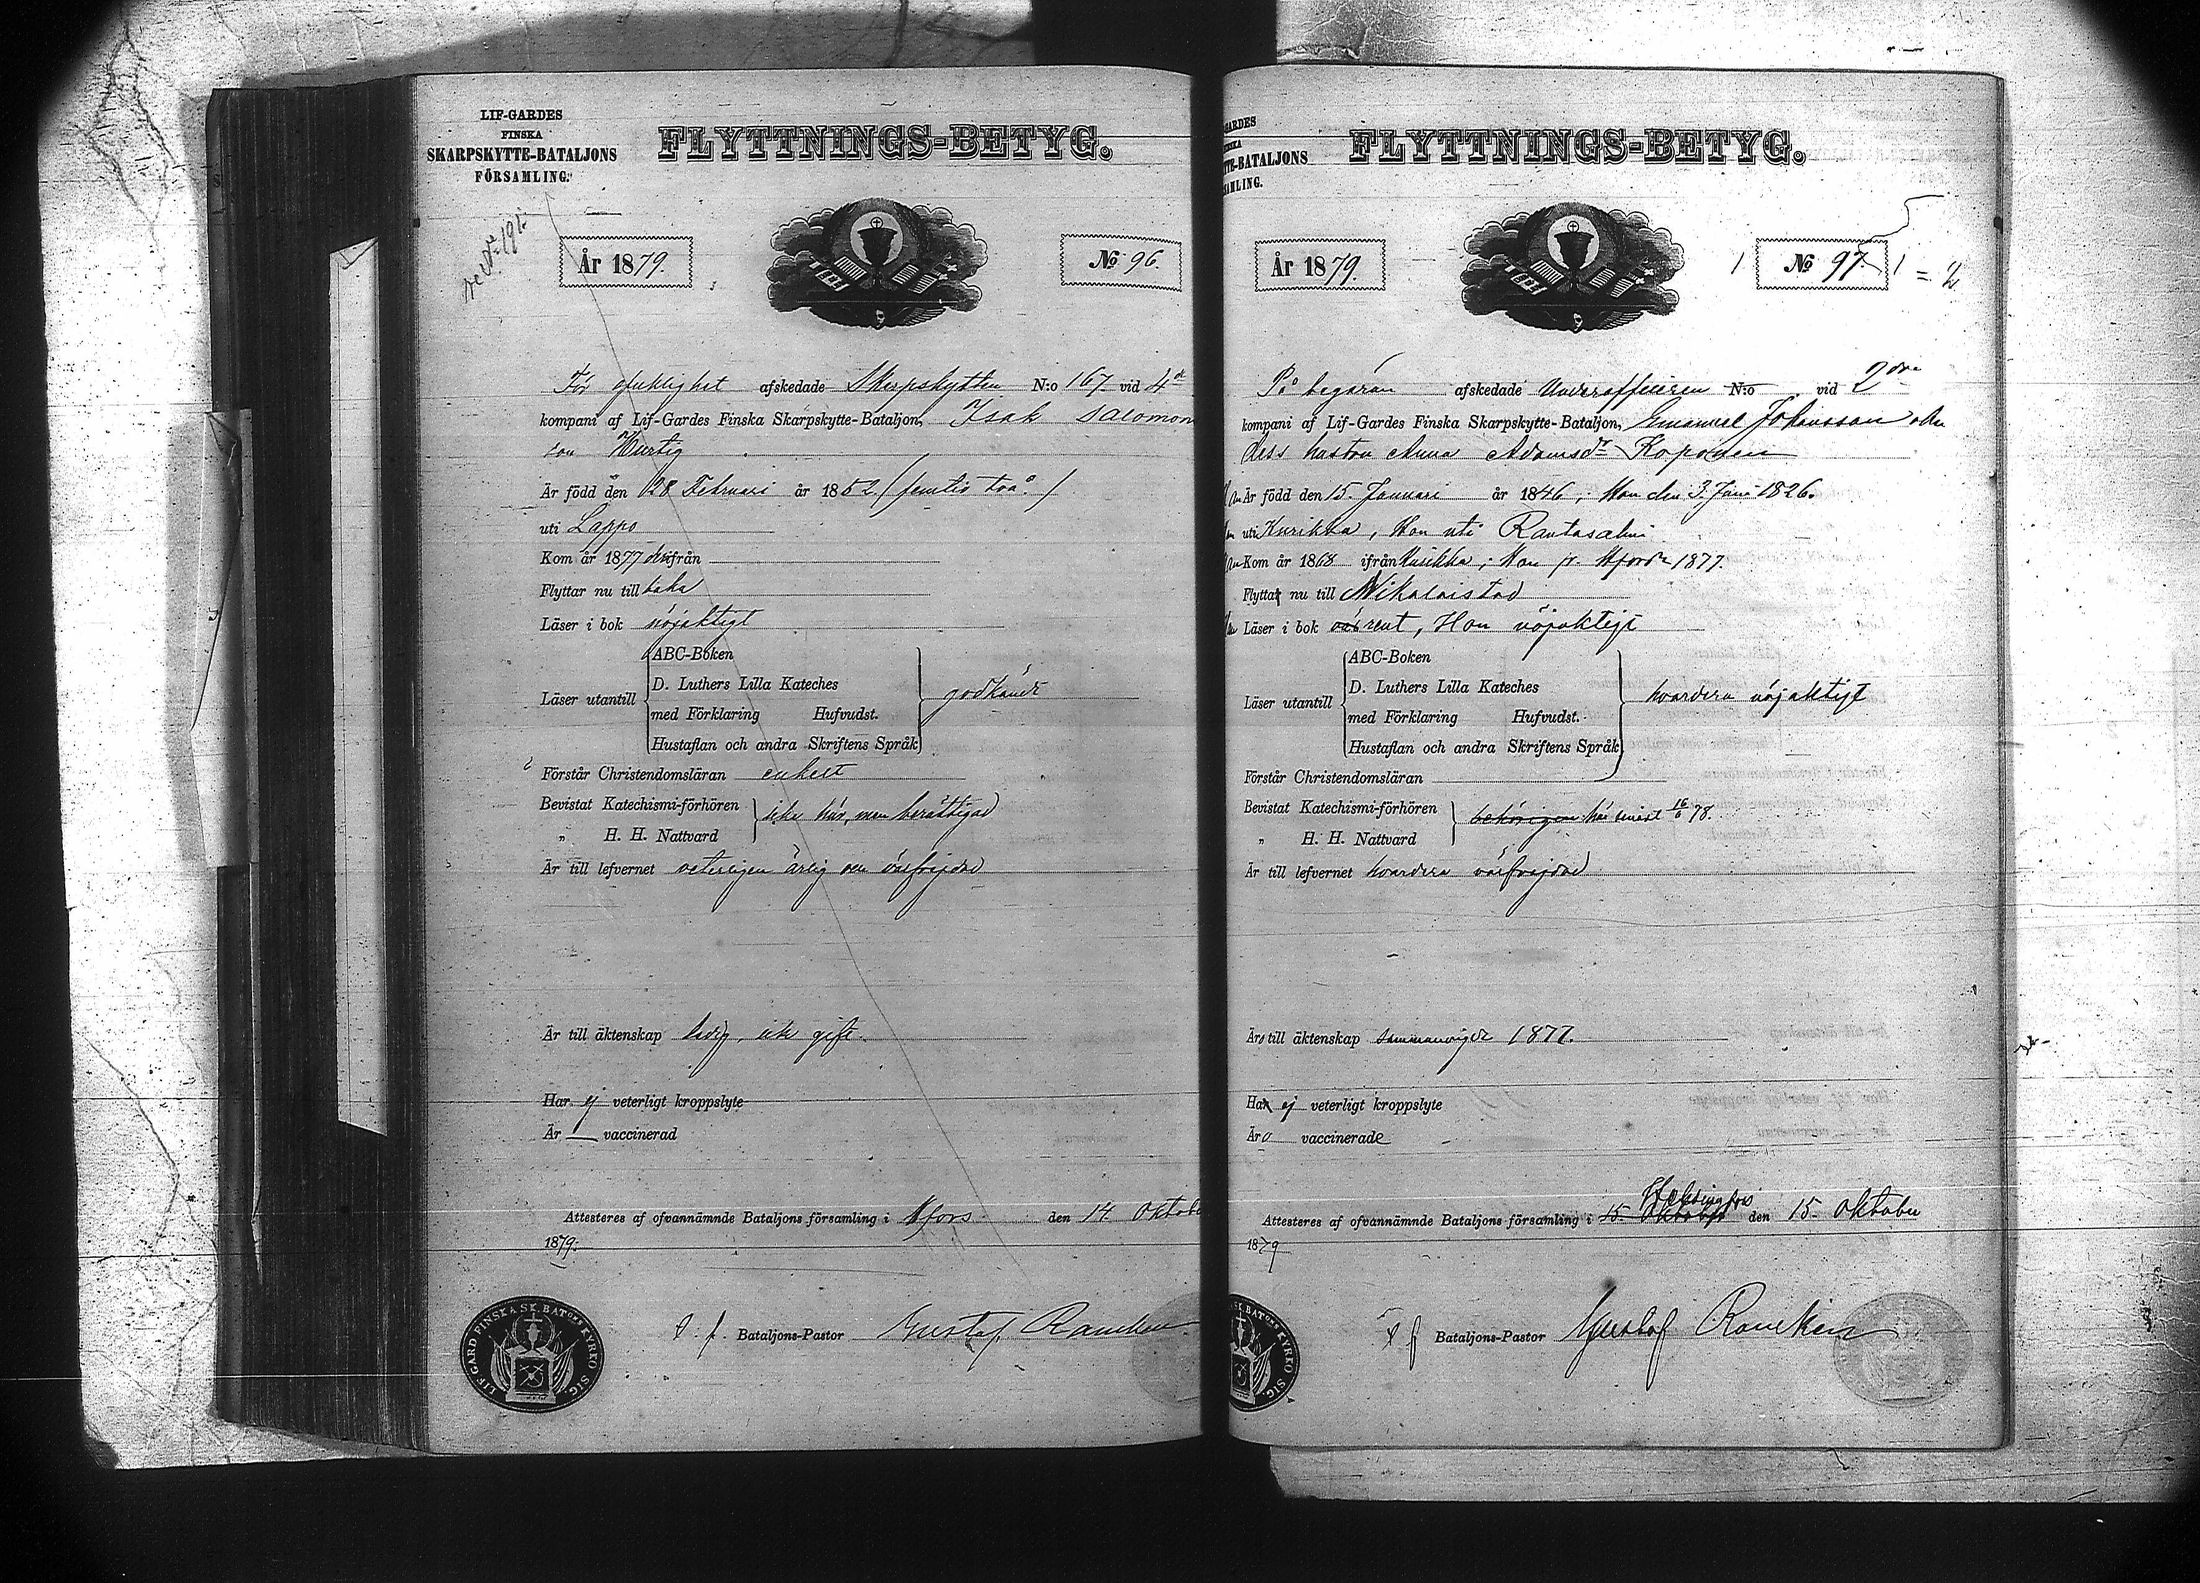 LIF-GARDES
FINSKA
SKARPSKYTTE-BATALJONS
FÖRSAMLING.
FLYTTNINGS-BETYG.
År 1879.
№ 96.
För afskedade Skarpskytten N:o 167 vid 4de
kompani af Lif-Gardes Finska Skarpskytte-Bataljon, Isak Salomon
son Hurtig
Är född den 28 Februari år 1852. (femtio två)
uti Lappo
Kom år 1877 från
Flyttar nu till baka
Läser i bok nöjaktigt
Läser utantill
ABC-Boken
D. Luthers Lilla Kateches
med Förklaring Hufvudst.
Hustaflan och andra Skriftens Språk
godkändt
Förstår Christendomsläran enkelt
Bevistat Katechismi-förhören
„ H. H. Nattvard
icke här, men berättigad
Är till lefvernet veterligen ärlig och oförvitlig
Är till äktenskap ledig, icke gift.
Har ej veterligt kroppslyte
Är vaccinerad
Attesteres af ofvannämnde Bataljons församling i Hfors den 14 Oktober
1879.
Bataljons-Pastor Gustaf Rancken
LIF GARD FINSKA SK. BATONS KYRKO SIG.
GARDES
SKA
TTE-BATALJONS
AMLING.
FLYTTNINGS-BETYG.
År 1879.
1 № 97. 1 = 2
På begäran afskedade Underofficeren N:o vid 2dra
kompani af Lif-Gardes Finska Skarpskytte-Bataljon, Emanuel Johansson och
dess hustru Anna Adamsdr Koponen
Är född den 15. Januari år 1846, Hon den 3. Juni 1826.
uti Kurikka, Hon uti Rantasalmi
Kom år 1868 ifrån Kurikka; Hon fr. Hfors 1877.
Flytta nu till Nikolaistad
Läser i bok rent, Hon nöjaktigt
Läser utantill
ABC-Boken
D. Luthers Lilla Kateches
med Förklaring Hufvudst.
Hustaflan och andra Skriftens Språk
hvardera nöjaktigt
Förstår Christendomsläran
Bevistat Katechismi-förhören
„ H. H. Nattvard
behörigen här senast 16/6 78.
Är till lefvernet hvardera
Äro till äktenskap sammanvigde 1877.
Ha ej veterligt kroppslyte
Äro vaccinerade
Helsingfors
Attesteres af ofvannämnde Bataljons församling i 15 Oktober den 15. Oktober
1879
Bataljons-Pastor Gustaf Rancken
SK. BATONS KYRKO SIG.